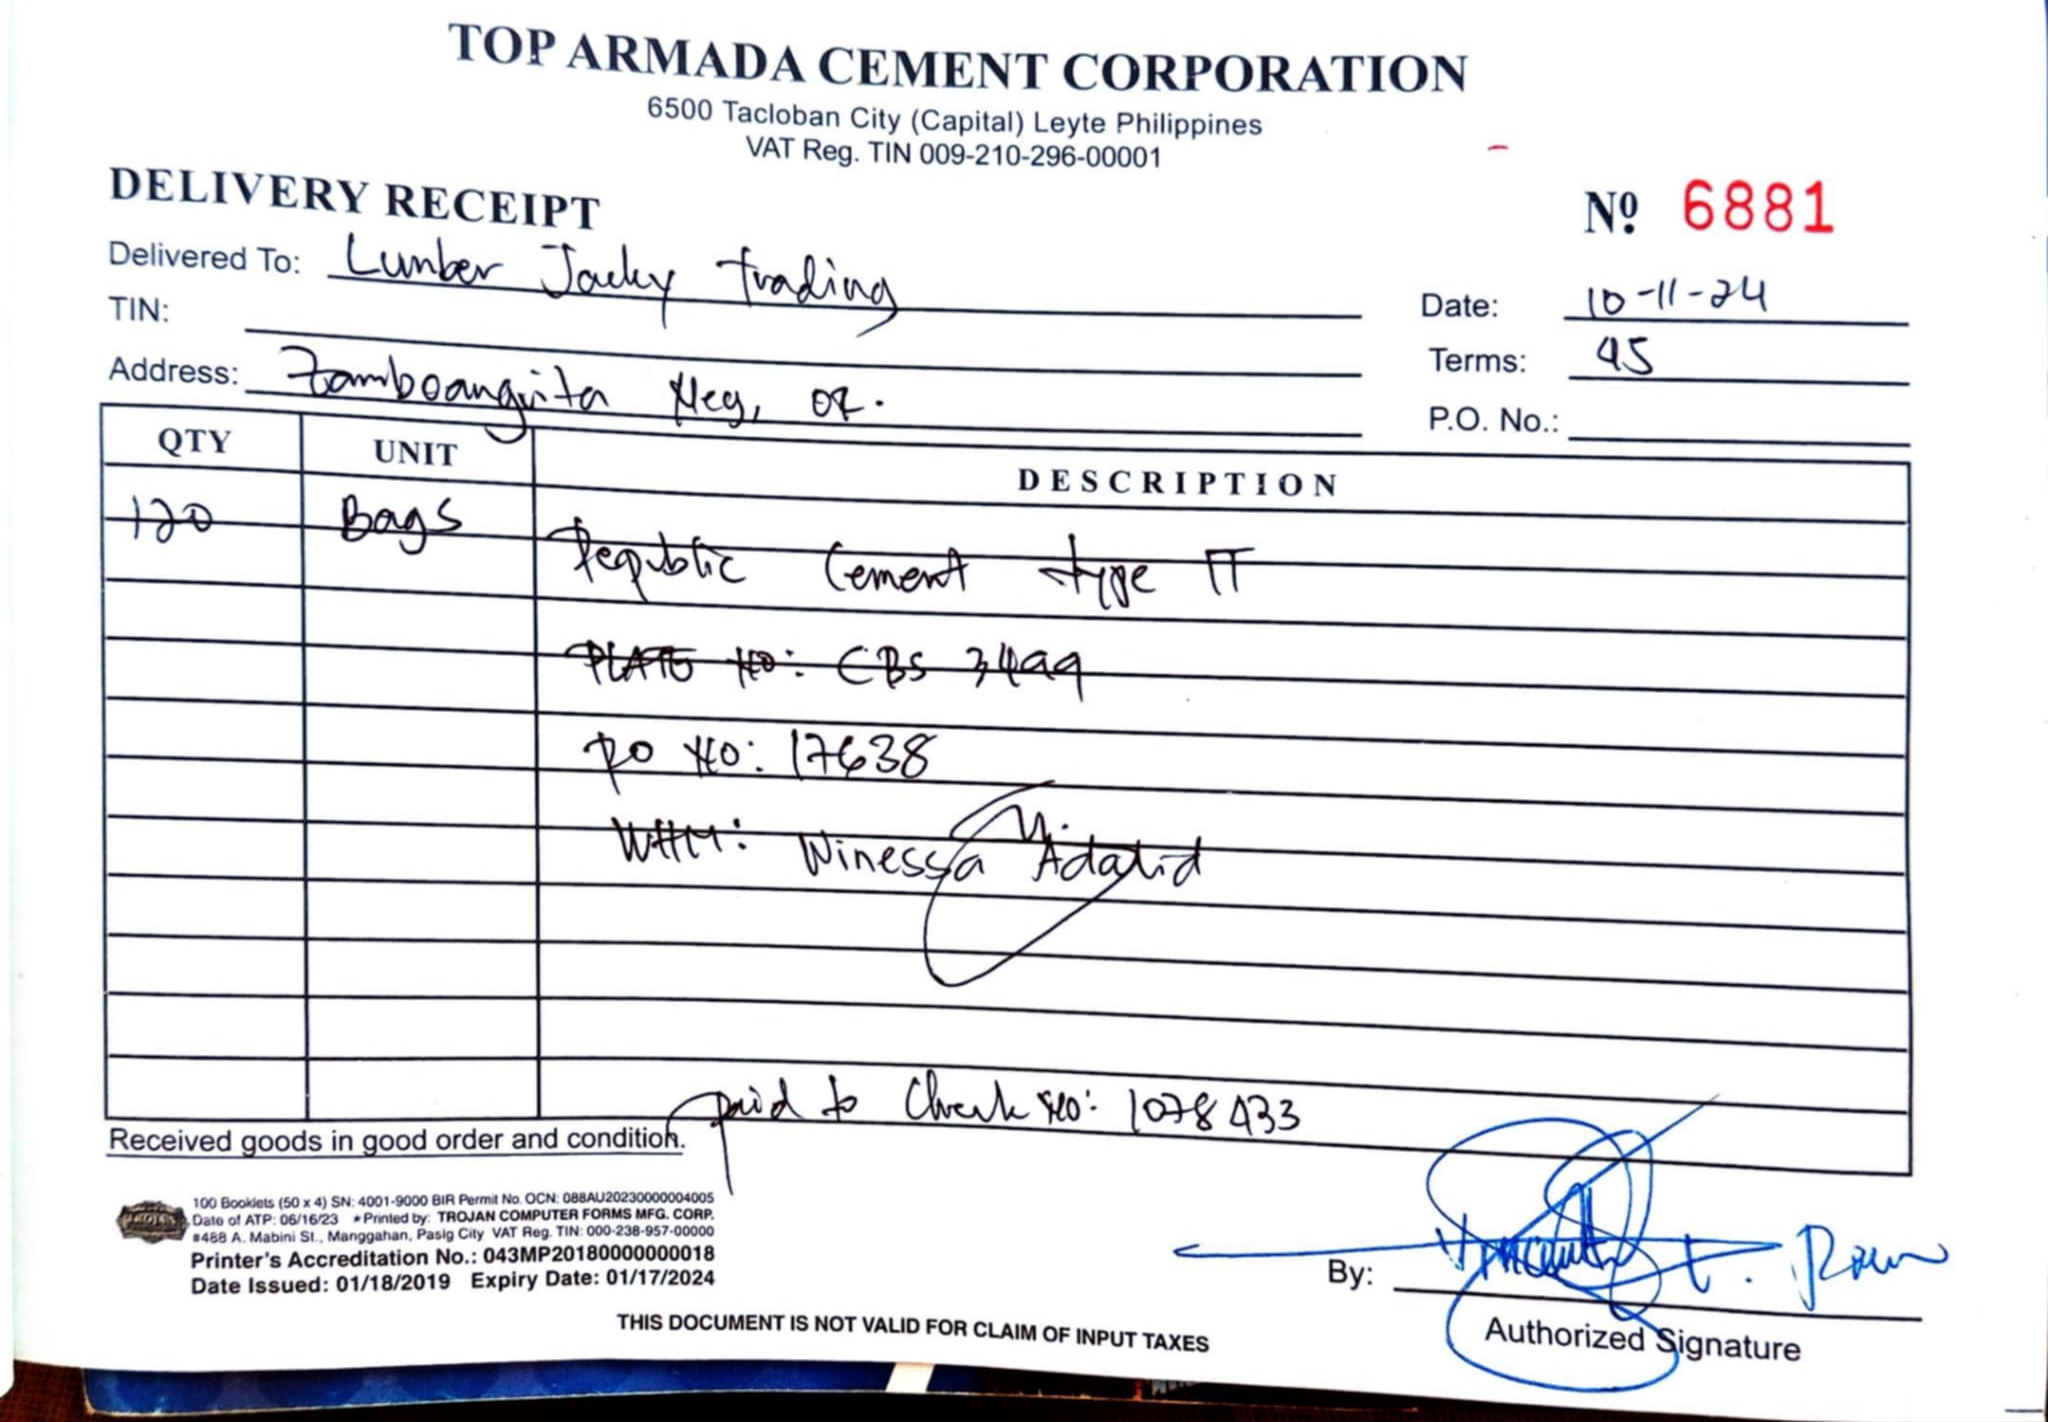 TOP ARMADA CEMENT CORPORATION
6500 Tacloban City (Capital) Leyte Philippines
VAT Reg. TIN 009-210-296-00001
DELIVERY RECEIPT
Nº 6881
Delivered To: Lumber Jacky Trading
Date: 10-11-24
TIN:
Terms: 45
Address: Zamboanguita Neg, or.
P.O. No.:
QTY UNIT DESCRIPTION
120 Bags Republic Cement type 1T
PLATE NO: CBS 3499
PO NO: 17638
WHM: Winessa Adalid
paid to Check No: 1078433
Received goods in good order and condition.
100 Booklets (50 x 4) SN: 4001-9000 BIR Permit No. OCN: 088AU20230000004005
Date of ATP: 06/16/23 *Printed by: TROJAN COMPUTER FORMS MFG. CORP.
#488 A. Mabini St., Manggahan, Pasig City VAT Reg. TIN: 000-238-957-00000
Printer's Accreditation No.: 043MP20180000000018
Date Issued: 01/18/2019 Expiry Date: 01/17/2024
By:
Authorized Signature
THIS DOCUMENT IS NOT VALID FOR CLAIM OF INPUT TAXES